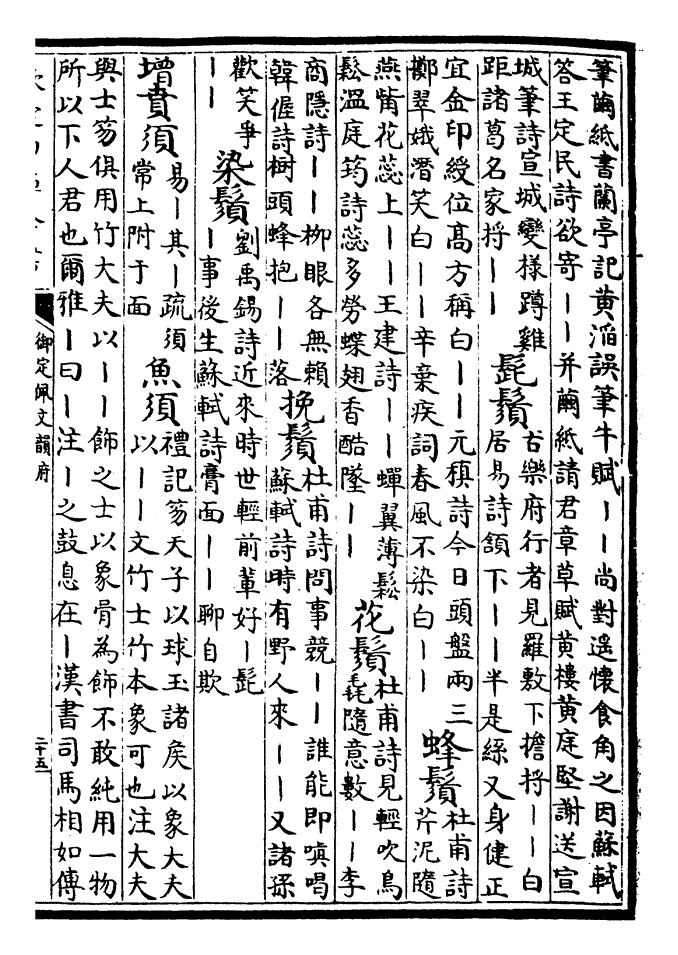 筆繭紙書蘭亭記黄滔誤筆牛賦丨丨尚對遥懷食角之因蘇軾
答王定民詩欲寄丨丨并繭紙請君章草賦黄樓黄庭堅謝送宣
城筆詩宣城變様蹲雞
距諸葛名家捋丨丨
髭鬚
古樂府行者見羅敷下擔捋丨丨白
居易詩頷下丨丨半是絲又身健正
宜金印綬位髙方稱白丨丨元稹詩今日頭盤兩三
鄰翠娥潛笑白丨丨辛棄疾詞春風不染白丨丨
蜂鬚
杜甫詩
芹泥隨
燕觜花蕊上丨丨王建詩丨丨蟬翼薄鬆
鬆溫庭筠詩蕊多勞蝶翅香酷墜丨丨
花鬚
杜甫詩見輕吹鳥
毳隨意數丨丨李
商隱詩丨丨柳眼各無賴
韓偓詩樹頭蜂抱丨丨落
挽鬚
杜甫詩問事競丨丨誰能即嗔喝
蘇軾詩時有野人來丨丨又諸孫
歡笑爭
丨丨
染鬚
劉禹錫詩近來時世輕前輩好丨髭
丨事後生蘇軾詩膏面丨丨聊自欺
增賁須
易丨其丨疏須
常上附于面
魚須
禮記笏天子以球玉諸矦以象大夫
以丨丨文竹士竹本象可也注大夫
與士笏俱用竹大夫以丨丨飾之士以象骨為飾不敢純用一物
所以下人君也爾雅丨曰丨注丨之鼓息在丨漢書司馬相如傳
御定佩文韻府
二十五